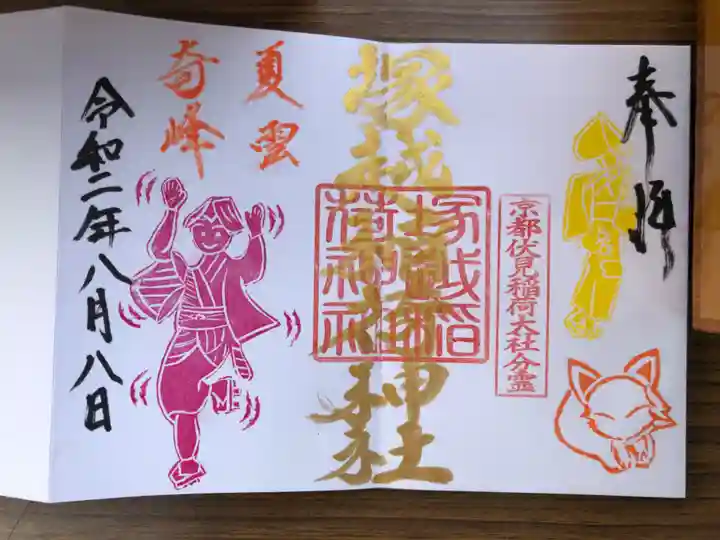 奉拝
京都伏見稲荷大社分霊
塚越稲荷神社
塚越稲
荷神社
夏雲
奇峰
令和二年八月八日